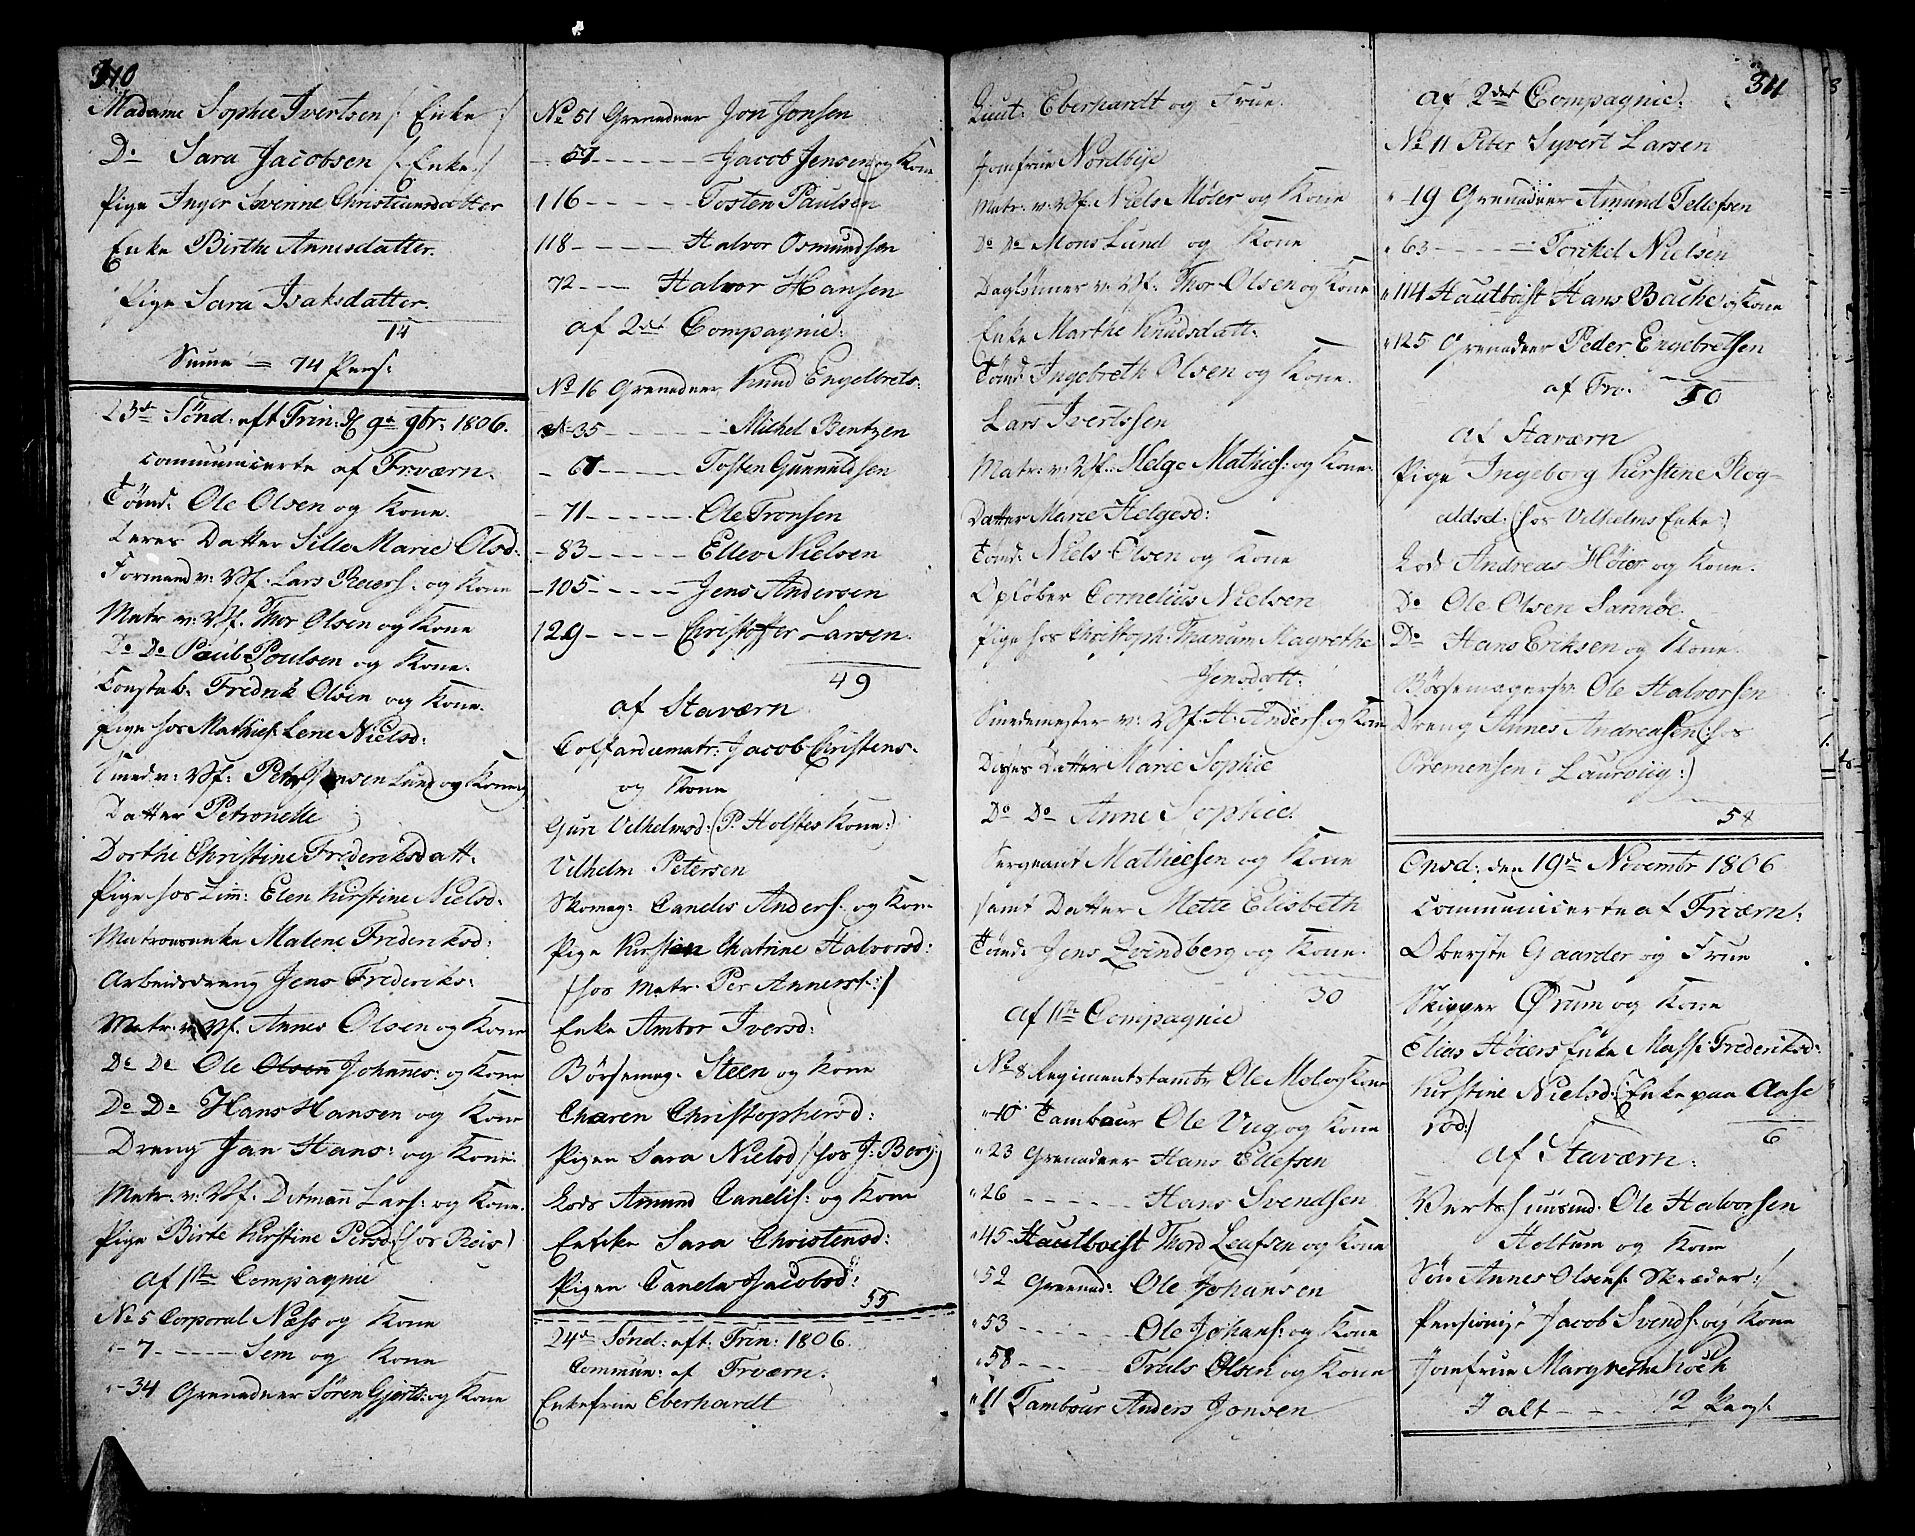 310
Madame Sophie Ivertsen /: Enke :/
Do Sara Jacobsen /: Enke :/
Pige Inger Sevrine Christiansdatter
Enke Birthe Annesdatter.
Pige Sara Isaksdatter.
14
Suma = 74 Pers:
23de Sønd: eft Trin: D. 9de 9br: 1806.
communicerte af Frværn.
Tømd: Ole Olsen og Kone.
Deres Datter Sille Marie Olsd:
Formand v: Vf: Lars Reiers: og Kone
Matr: v: Vf: Thor Olsen og Kone
Do Do Paul Poulsen og Kone.
Constab: Fredrik Olsen og Kone.
Pige hos Mathies: Lene Nielsd:
Smed v: Vf: Peter Jensen Lund og Kone
Datter Petronelle
Dorthe Christine Frederiksdatt:
Pige hos Lim: Elen Kirstine Nielsd:
Matrosenke Malene Frederiksd:
Arbeidsdreng Jens Frederiks:
Matr. v: Vf. Annes Olsen og Kone
Do Do Ole Olsen Johannes: og Kone
Do Do Hans Hansen og Kone
Dreng Jan Hans: og Kone
Matr. v: Vf. Ditmann Lars: og Kone.
Pige Birte Kirstine Persd: (hos Reis)
af 1te Compagnie
No 5 Corporal Næss og Kone
- 7 - - - Sem og Kone
- 34 Grenadeer Søren Gjerts: og Kone
No 51 Grenadeer Jon Jonsen
- 57 - - - - Jacob Jensen og Kone
116 - - - - Tosten Paulsen
118 - - - - Halvor Osmundsen
72 - - - Halvor Hansen
af 2det Compagnie:
No 16 Grenadeer Knud Engelbrets:
- 35 - - - - Mikkel Bentzen
- 67 - - - - Tosten Gunnuldsen
- 71 - - - - Ole Tronsen
- 83 - - - - Ellev Nielsen
- 105 - - - - Jens Andersen
129 - - - - Christoffer Larsen.
49
af Staværn
Coffardiematr: Jacob Christens:
og Kone
Guri Vilhelmsd: (P. Holstes Kone:)
Vilhelm Petersen
Skomag: Canelis Anders: og Kone
Pige Kirsten Chatrine Halvorsd:
/: hos Matr: Per Anners: :/
Enke Ambor Iversd:
Børsemag. Steen og Kone
Charen Christophersd:
Pigen Sara Nielsd /: hos J: Berg:/
Lods Amund Canelis: og Kone
Encke Sara Christensd:
Pigen Canela Jacobsd:
55
24de Sønd: eft: Trin: 1806.
Commun: af Frværn:
Enkefrue Eberhardt
Lieut: Eberhardt og Frue.
Jomfrue Nordbye
Matr: v: Vf: Niels Møier og Kone
Do Do Mons Lund og Kone
Daglønner v: Vf: Thor Olsen og Kone
Enke Marthe Knudsdatt:
Tømd: Ingebreth Olsen og Kone.
Lars Ivertssen
Matr: v: Vf: Helge Mathies: og Kone:
Datter Marie Helgesd:
Tømd: Niels Olsen og Kone
Opsøber Cornelius Nielsen
Pige hos Christoph: Thanum Magrethe
Jensdatt:
Smedemester v: Vf: A: Anders: og Kone
Deres Datter Marie Sophie
Do Do Anne Sophie.
Sergeant Mathiesen og Kone
samt Datter Mette Elisbeth
Tømd: Jens Qvindberg og Kone.
30
af 1te Compagnie
No 8 Regimentstambr Ole Mel og Kone
" 10 Tambour Ole Vug og Kone
" 23 Grenadeer Hans Ellefsen
" 26 - - - - Hans Svendsen
" 45 Hautboist Thord Leufsen og Kone
" 52 Grenad: Ole Johansen
" 53 - - - - Ole Johans: og Kone
" 58 - - - Truls Olsen og Kone
" 11 Tambour Anders Jonsen
311
af 2det Compagnie.
No 11 Peter Syvert Larsen
" 19 Grenadeer Amund Tellefsen
" 63 - - - - Torkel Nielsen
" 114 Hautboist Hans Bache og Kone
" 125 Grenadeer Peder Engebretsen
af Fro. 50
af Staværn
Pige Ingeborg Kirstine Rog-
aldsd: (hos Vilhelms Enke:)
Lods Andreas Høier og Kone.
Do Ole Olsen Sannøe.
Do Hans Eriksen og Kone.
Bøssemagersv: Ole Halvorsen
Dreng Annes Andreasen (: hos
Bremensen i Laurvig:)
58
Onsd: den 19de Novembr 1806
communicerte af Frværn:
Oberste Gaarder og Frue
Skipper Ørum og Kone
Elias Høiers Enke Masse Frederiksd:
Kirstine Nielsd: (Enke paa Aase
rød:)
6
af Staværn:
Vertshuusmd. Ole Halvorsen
Holtum og Kone
Søn Annes Olsens: Skræder :/
Pensionist Jacob Svends: og Kone
Jomfrue Margrethe Koch
I alt - - - 12 Pers: